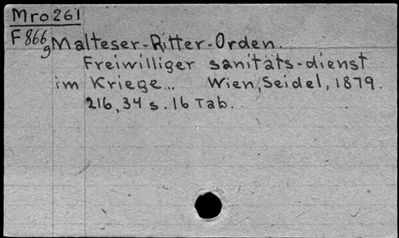 Mro261
F866g Malteser-Ritter-Orden.
Freiwilliger sanitäts-dienst
im Kriege... Wien, Seidel, 1879.
216, 34 s. 16 Tab.